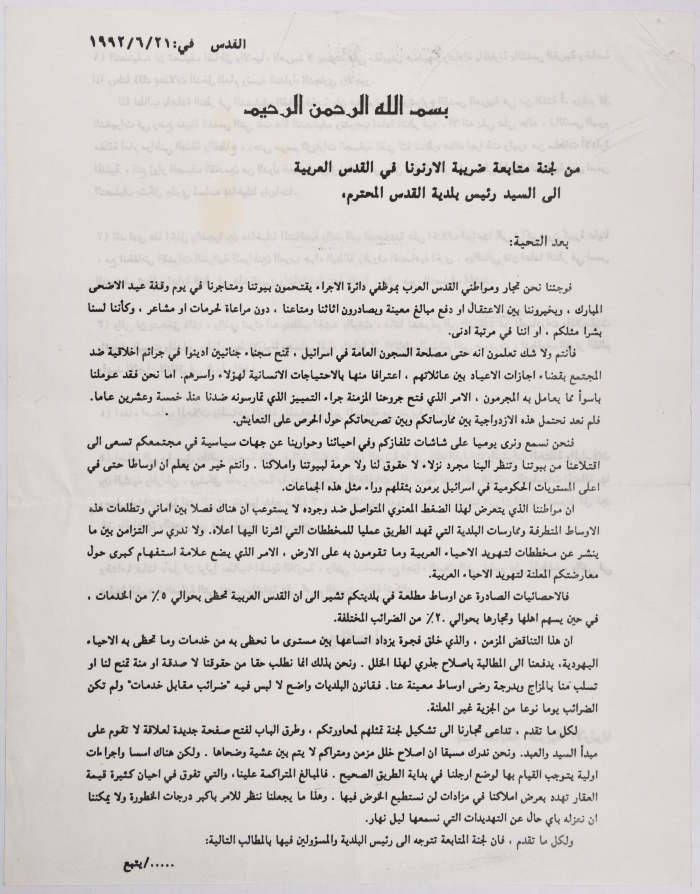 القدس في: ١٩٩٢/٦/٢١
بسم الله الرحمن الرحيم
من لجنة متابعة ضريبة الارنونا في القدس العربية
الى السيد رئيس بلدية القدس المحترم،
بعد التحية:
فوجئنا نحن تجار ومواطني القدس العرب بموظفي دائرة الاجراء يقتحمون بيوتنا ومتاجرنا في يوم وقفة عيد الاضحى
المبارك ، ويخيروننا بين الاعتقال او دفع مبالغ معينة ويصادرون اثاثنا ومتاعنا ، دون مراعاة لحرمات او مشاعر ، وكأننا لسنا
بشرا مثلكم ، او اننا في مرتبة ادنى.
فأنتم ولا شك تعلمون انه حتى مصلحة السجون العامة في اسرائيل ، تمنح سجناء جنائيين ادينوا في جرائم اخلاقية ضد
المجتمع بقضاء اجازات الاعياد بين عائلاتهم ، اعترافا منها بالاحتياجات الانسانية لهؤلاء وأسرهم. اما نحن فقد عوملنا
باسوأ مما يعامل به المجرمون ، الامر الذي فتح جروحنا المزمنة جراء التمييز الذي تمارسونه ضدنا منذ خمسة وعشرين عاما.
فلم نعد نحتمل هذه الازدواجية بين ممارساتكم وبين تصريحاتكم حول الحرص على التعايش.
فنحن نسمع ونرى يوميا على شاشات تلفازكم وفي احيائنا وحوارينا عن جهات سياسية في مجتمعكم تسعى الى
اقتلاعنا من بيوتنا وتنظر الينا مجرد نزلاء لا حقوق لنا ولا حرمة لبيوتنا واملاكنا . وانتم خير من يعلم ان اوساطا حتى في
اعلى المستويات الحكومية في اسرائيل يرمون بثقلهم وراء مثل هذه الجماعات.
ان مواطننا الذي يتعرض لهذا الضغط المعنوي المتواصل ضد وجوده لا يستوعب ان هناك فصلا بين اماني وتطلعات هذه
الاوساط المتطرفة وممارسات البلدية التي تمهد الطريق عمليا للمخططات التي اشرنا اليها اعلاه. ولا ندري سر التزامن بين ما
ينشر عن مخططات لتهويد الاحياء العربية وما تقومون به على الارض ، الامر الذي يضع علامة استفهام كبرى حول
معارضتكم المعلنة لتهويد الاحياء العربية.
فالاحصائيات الصادرة عن اوساط مطلعة في بلديتكم تشير الى ان القدس العربية تحظى بحوالي ٥٪ من الخدمات ،
في حين يسهم اهلها وتجارها بحوالي ٢٠٪ من الضرائب المختلفة.
ان هذا التناقض المزمن ، والذي خلق فجوة يزداد اتساعها بين مستوى ما نحظى به من خدمات وما تحظى به الاحياء
اليهودية، يدفعنا الى المطالبة باصلاح جذري لهذا الخلل . ونحن بذلك انما نطلب حقا من حقوقنا لا صدقة او منة تمنح لنا او
تسلب منا بالمزاج وبدرجة رضى اوساط معينة عنا. فقانون البلديات واضح لا لبس فيه "ضرائب مقابل خدمات" ولم تكن
الضرائب يوما نوعا من الجزية غير المعلنة.
لكل ما تقدم ، تداعى تجارنا الى تشكيل لجنة تمثلهم لمحاورتكم ، وطرق الباب لفتح صفحة جديدة لعلاقة لا تقوم على
مبدأ السيد والعبد. ونحن ندرك مسبقا ان اصلاح خلل مزمن ومتراكم لا يتم بين عشية وضحاها . ولكن هناك اسسا واجراءات
اولية يتوجب القيام بها لوضع ارجلنا في بداية الطريق الصحيح . فالمبالغ المتراكمة علينا، والتي تفوق في احيان كثيرة قيمة
العقار تهدد بعرض املاكنا في مزادات لن نستطيع الخوض فيها . وهذا ما يجعلنا ننظر للامر باكبر درجات الخطورة ولا يمكننا
ان نعزله باي حال عن التهديدات التي نسمعها ليل نهار.
ولكل ما تقدم ، فان لجنة المتابعة تتوجه الى رئيس البلدية والمسؤولين فيها بالمطالب التالية:
...../يتبع